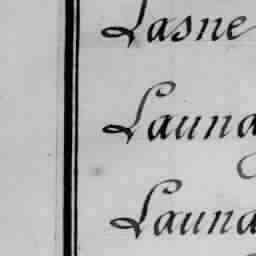 Lasne
Launa
Launa